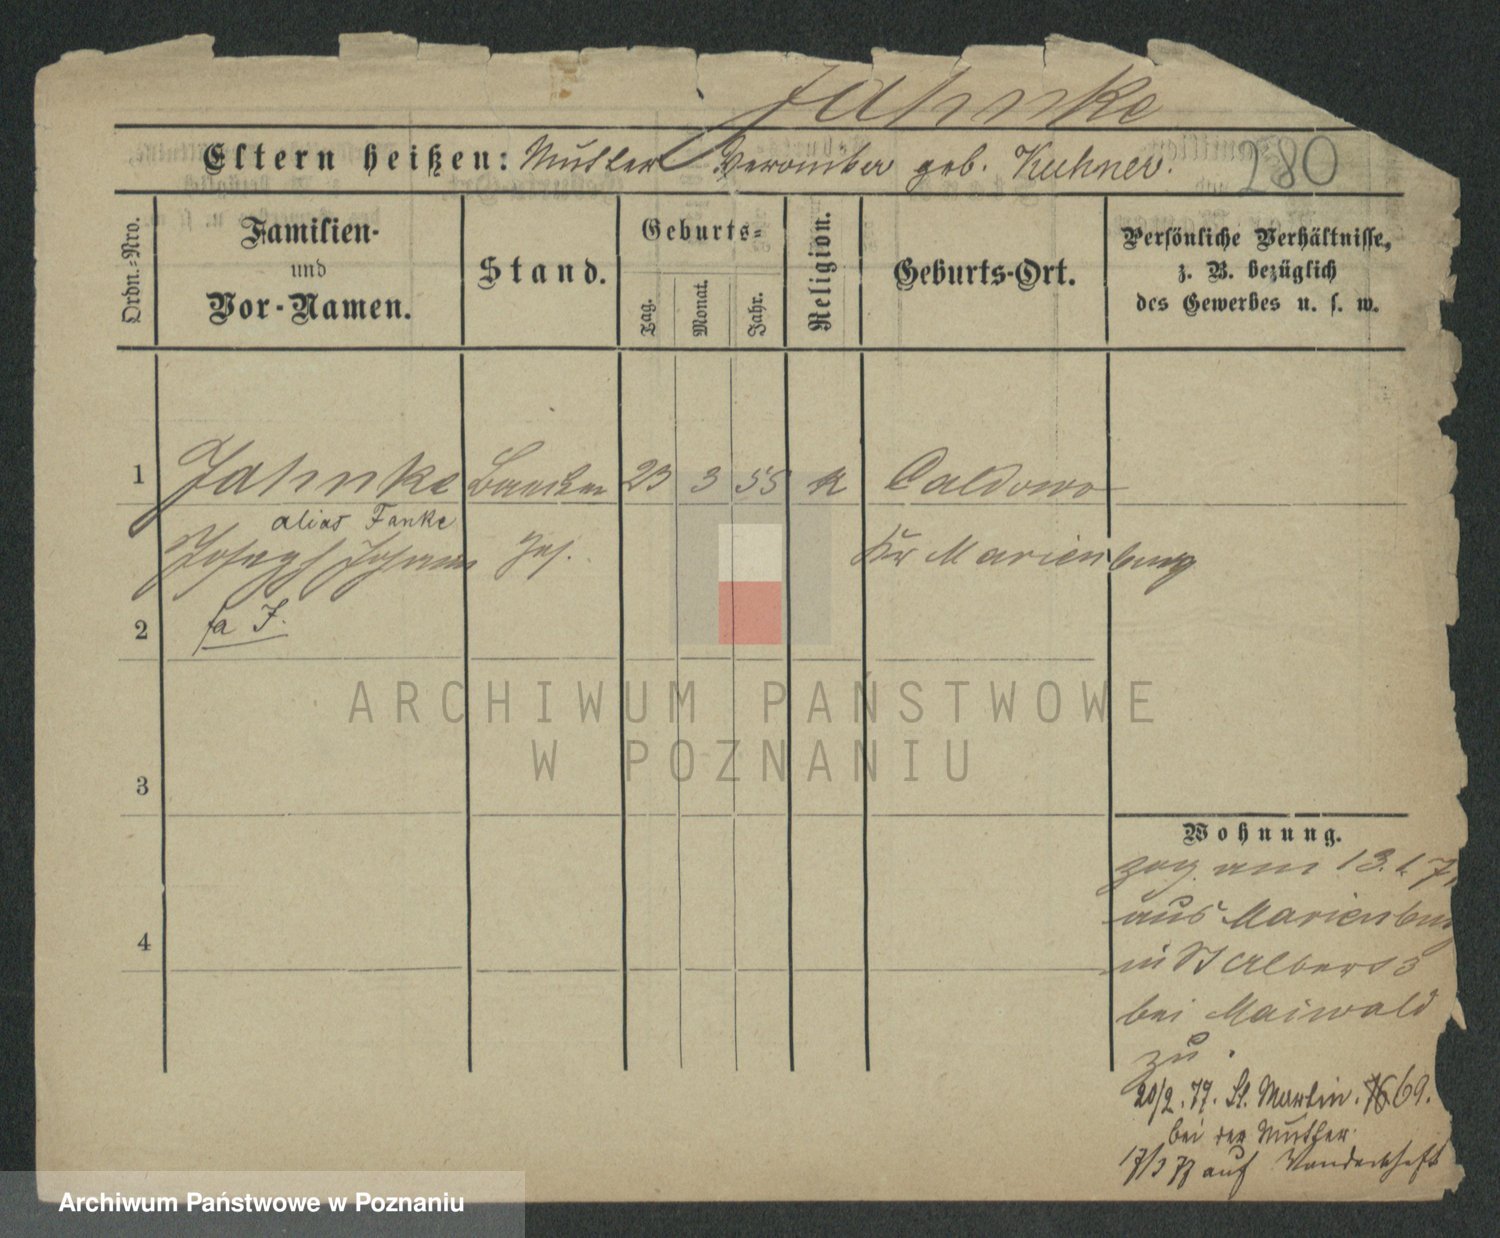 Jahnke
Eltern heißen: Mutter Veronika geb. Kuhner.
280
Ordn.-Nro.
Familien-
und
Vor-Namen.
Stand.
Geburts-
Tag.
Monat.
Jahr.
Religion.
Geburts-Ort.
Persönliche Verhältnisse,
z. B. bezüglich
des Gewerbes u. s. w.
1 Jahnke 23 3 55 k Caldowo
alias Fanke
Joseph Johann Ges. Kr Marienburg
2 fa J.
3
4
Wohnung.
zog am 13.1.7
aus Marienburg
in St Albert 3
bei Maiwald
zu.
20/2. 77. St. Martin. 69.
bei der Mutter.
17/3 77 auf Wanderschaft
ARCHIWUM PAŃSTWOWE
W POZNANIU
Archiwum Państwowe w Poznaniu